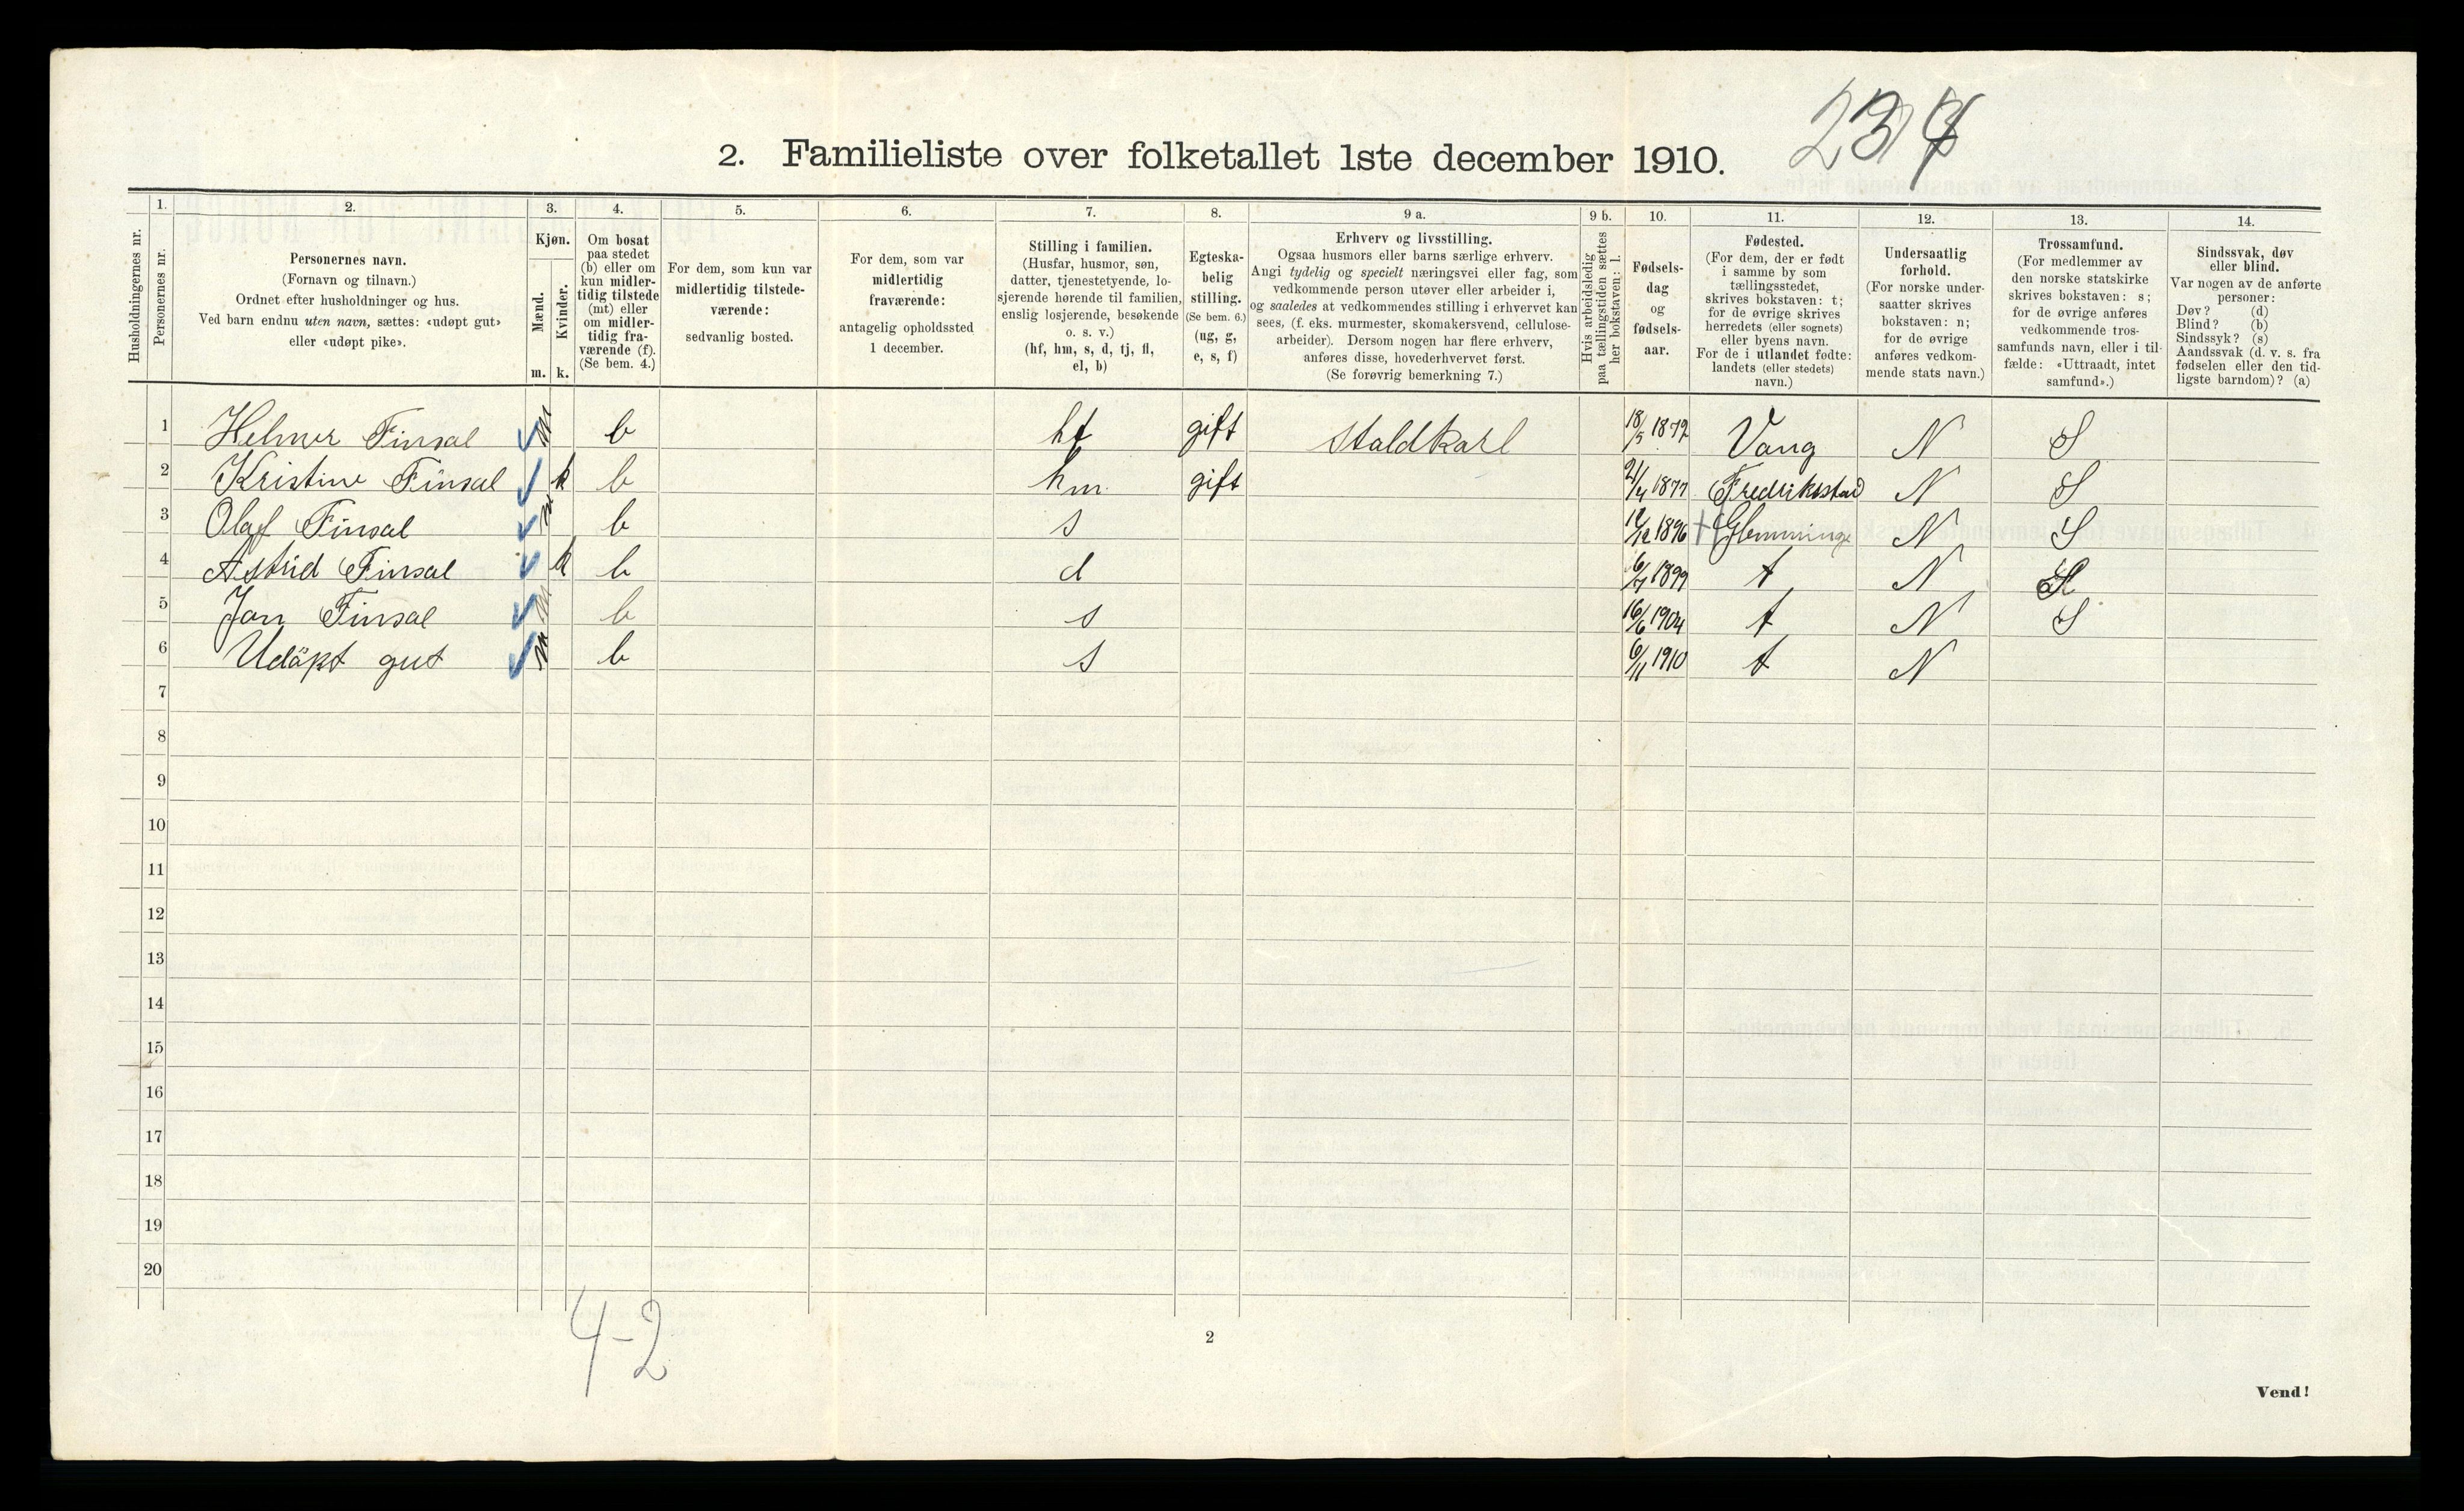 2. Familieliste over folketallet 1ste december 1910.
Husholdningernes nr.
1. Personernes nr.
2. Personernes navn.
(Fornavn og tilnavn.)
Ordnet efter husholdninger og hus.
Ved barn endnu uten navn, sættes: «udøpt gut»
eller «udøpt pike».
3. Kjøn.
Mænd. m.
Kvinder. k.
4. Om bosat
paa stedet
(b) eller om
kun midler-
tidig tilstede
(mt) eller
om midler-
tidig fra-
værende (f).
(Se bem. 4.)
5. For dem, som kun var
midlertidig tilstede-
værende:
sedvanlig bosted.
6. For dem, som var
midlertidig
fraværende:
antagelig opholdssted
1 december.
7. Stilling i familien.
(Husfar, husmor, søn,
datter, tjenestetyende, lo-
sjerende hørende til familien,
enslig losjerende, besøkende
o. s. v.)
(hf, hm, s, d, tj, fl,
el, b)
8. Egteska-
belig
stilling.
(Se bem. 6.)
(ug, g,
e, s, f)
9 a. Erhverv og livsstilling.
Ogsaa husmors eller barns særlige erhverv.
Angi tydelig og specielt næringsvei eller fag, som
vedkommende person utøver eller arbeider i,
og saaledes at vedkommendes stilling i erhvervet kan
sees, (f. eks. murmester, skomakersvend, cellulose-
arbeider). Dersom nogen har flere erhverv,
anføres disse, hovederhvervet først.
(Se forøvrig bemerkning 7.)
9 b. Hvis arbeidsledig
paa tællingstiden sættes
her bokstaven: l.
10. Fødsels-
dag
og
fødsels-
aar.
11. Fødested.
(For dem, der er født
i samme by som
tællingsstedet,
skrives bokstaven: t;
for de øvrige skrives
herredets (eller sognets)
eller byens navn.
For de i utlandet fødte:
landets (eller stedets)
navn.)
12. Undersaatlig
forhold.
(For norske under-
saatter skrives
bokstaven: n;
for de øvrige
anføres vedkom-
mende stats navn.)
13. Trossamfund.
(For medlemmer av
den norske statskirke
skrives bokstaven: s;
for de øvrige anføres
vedkommende tros-
samfunds navn, eller i til-
fælde: «Uttraadt, intet
samfund».)
14. Sindssvak, døv
eller blind.
Var nogen av de anførte
personer:
Døv? (d)
Blind? (b)
Sindssyk? (s)
Aandssvak (d. v. s. fra
fødselen eller den tid-
ligste barndom)? (a)
1 Helmer Finsal m b hf gift Staldkarl 18/5 1872 Vang N S
2 Kristine Finsal k b hm gift 21/4 1877 Fredrikstad N S
3 Olaf Finsal m b s 12/12 1896 Glemminge N S
4 Astrid Finsal k b d 1899 t N S
5 Jan Finsal m b s 16/6 1904 t N S
6 Udöpt gut m b s 6/11 1910 t N
7
8
9
10
11
12
13
14
15
16
17
18
19
20
4-2
2
Vend!